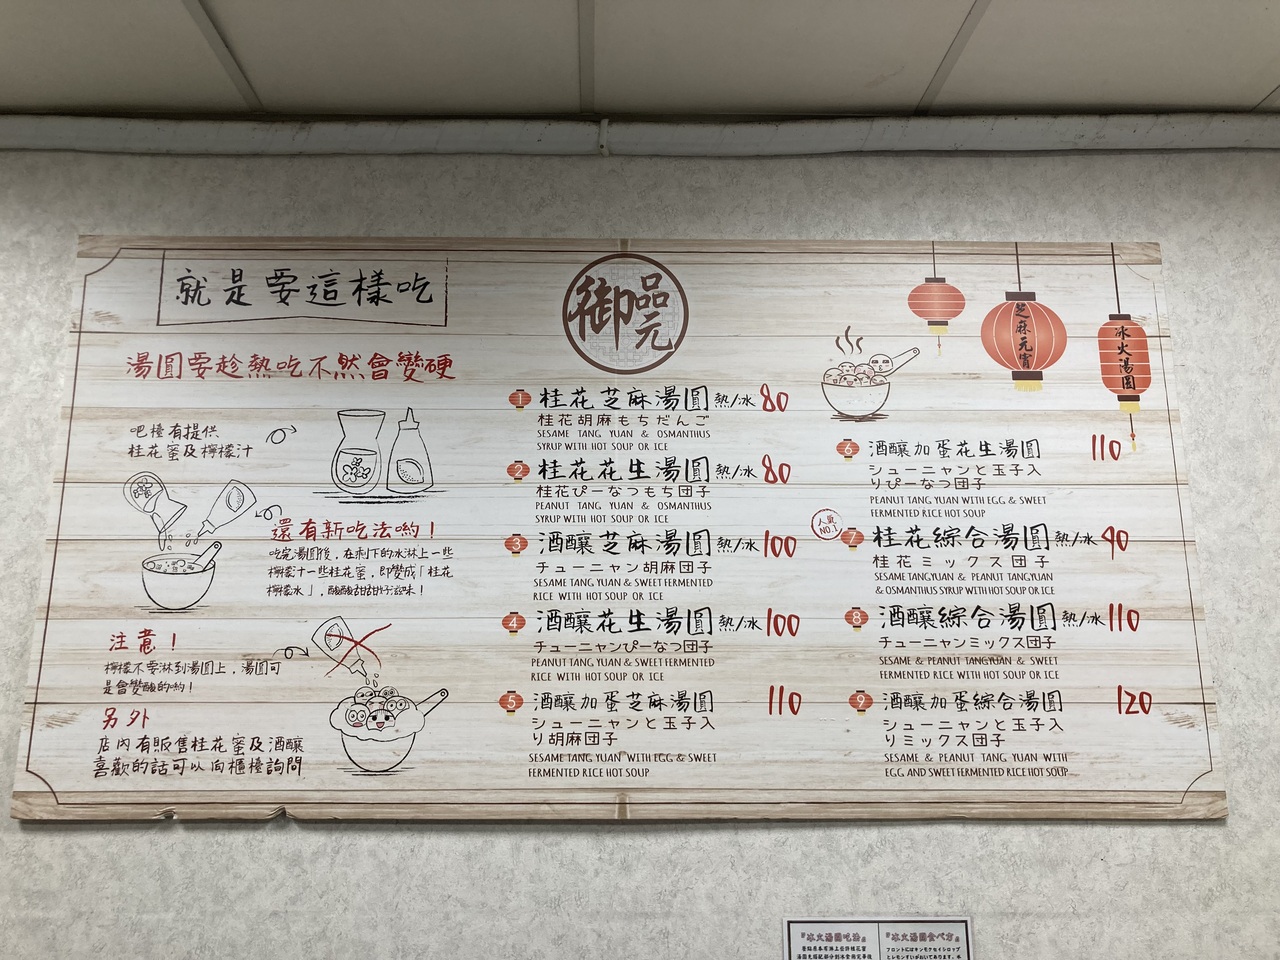 就是要這樣吃
湯圓要趁熱吃不然會變硬
吧檯有提供
桂花蜜及檸檬汁
還有新吃法喲！
吃完湯圓後，在剩下的冰淋上一些
檸檬汁一些桂花蜜，即變成「桂花
檸檬冰」，酸酸甜甜好滋味！
注意！
檸檬不要淋到湯圓上，湯圓可
是會變酸的喲！
另外
店內有販售桂花蜜及酒釀
喜歡的話可以向櫃檯詢問
御品元
1 桂花芝麻湯圓 熱/冰 80
桂花胡麻もちだんご
SESAME TANG YUAN & OSMANTHUS
SYRUP WITH HOT SOUP OR ICE
2 桂花花生湯圓 熱/冰 80
桂花ぴーなつもち団子
PEANUT TANG YUAN & OSMANTHUS
SYRUP WITH HOT SOUP OR ICE
3 酒釀芝麻湯圓 熱/冰 100
チューニャン胡麻団子
SESAME TANG YUAN & SWEET FERMENTED
RICE WITH HOT SOUP OR ICE
4 酒釀花生湯圓 熱/冰 100
チューニャンぴーなつ団子
PEANUT TANG YUAN & SWEET FERMENTED
RICE WITH HOT SOUP OR ICE
5 酒釀加蛋芝麻湯圓 110
シューニャンと玉子入
り胡麻団子
SESAME TANG YUAN WITH EGG & SWEET
FERMENTED RICE HOT SOUP
芝麻元宵
冰火湯圓
6 酒釀加蛋花生湯圓 110
シューニャンと玉子入
りぴーなつ団子
PEANUT TANG YUAN WITH EGG & SWEET
FERMENTED RICE HOT SOUP
人氣
NO.1
7 桂花綜合湯圓 熱/冰 90
桂花ミックス団子
SESAME TANGYUAN & PEANUT TANGYUAN
& OSMANTHUS SYRUP WITH HOT SOUP OR ICE
8 酒釀綜合湯圓 熱/冰 110
チューニャンミックス団子
SESAME & PEANUT TANGYUAN & SWEET
FERMENTED RICE WITH HOT SOUP OR ICE
9 酒釀加蛋綜合湯圓 120
シューニャンと玉子入
りミックス団子
SESAME & PEANUT TANG YUAN WITH
EGG AND SWEET FERMENTED RICE HOT SOUP
『冰火湯圓吃法』
『冰火湯圓食べ方』